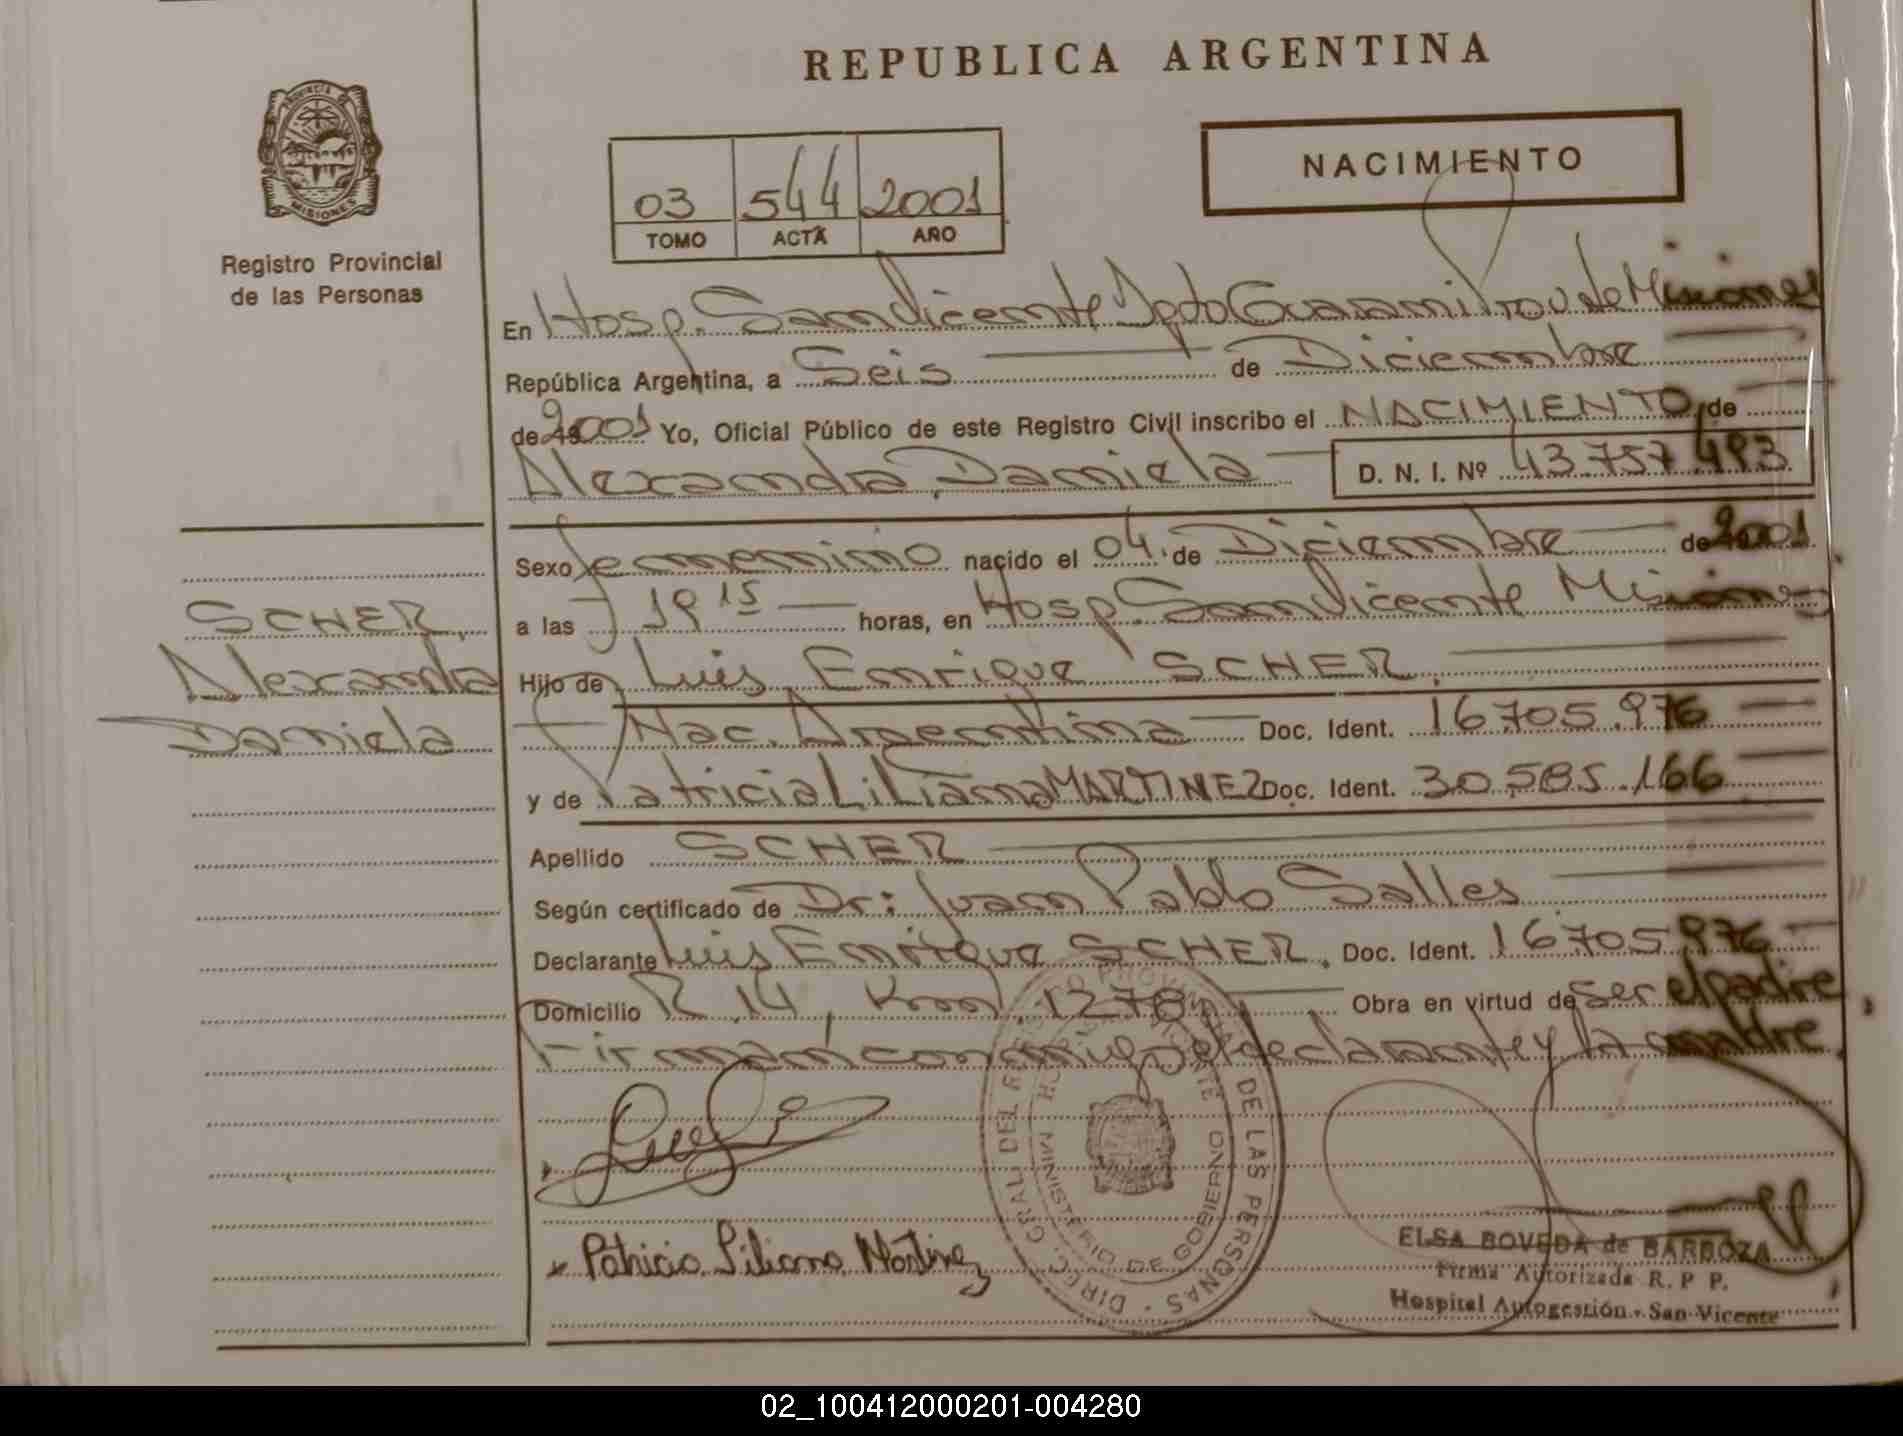 REPUBLICA ARGENTINA
PROVINCIA DE
MISIONES
Registro Provincial
de las Personas
03 544 2001
TOMO ACTA AÑO
NACIMIENTO
En Hosp. San Vicente Dpto Guaraní Prov de Misiones
República Argentina, a Seis de Diciembre
de 2001 Yo, Oficial Público de este Registro Civil inscribo el NACIMIENTO de
Alexandra Daniela D. N. I. Nº 43.757.493
Sexo femenino nacido el 04 de Diciembre de 2001
a las 19 15 horas, en Hosp. San Vicente Misiones
Hijo de Luis Enrique SCHER
Nac. Argentina Doc. Ident. 16.705.976
y de Patricia Liliana MARTINEZ Doc. Ident. 30.585.166
Apellido SCHER
Según certificado de Dr: Juan Pablo Salles
Declarante Luis Enrique SCHER. Doc. Ident. 16.705.976
Domicilio R 14, Km. 1278 Obra en virtud de Ser el padre,
Firman conmigo el declarante y la madre.
SCHER,
Alexandra
Daniela
Patricia Liliana Martinez
DIREC. GRAL. DEL REGISTRO PROVINCIAL DE LAS PERSONAS
MINISTERIO DE GOBIERNO
ELSA BOVEDA de BARBOZA
Firma Autorizada R. P P.
Hospital Autogestión - San Vicente
02_100412000201-004280